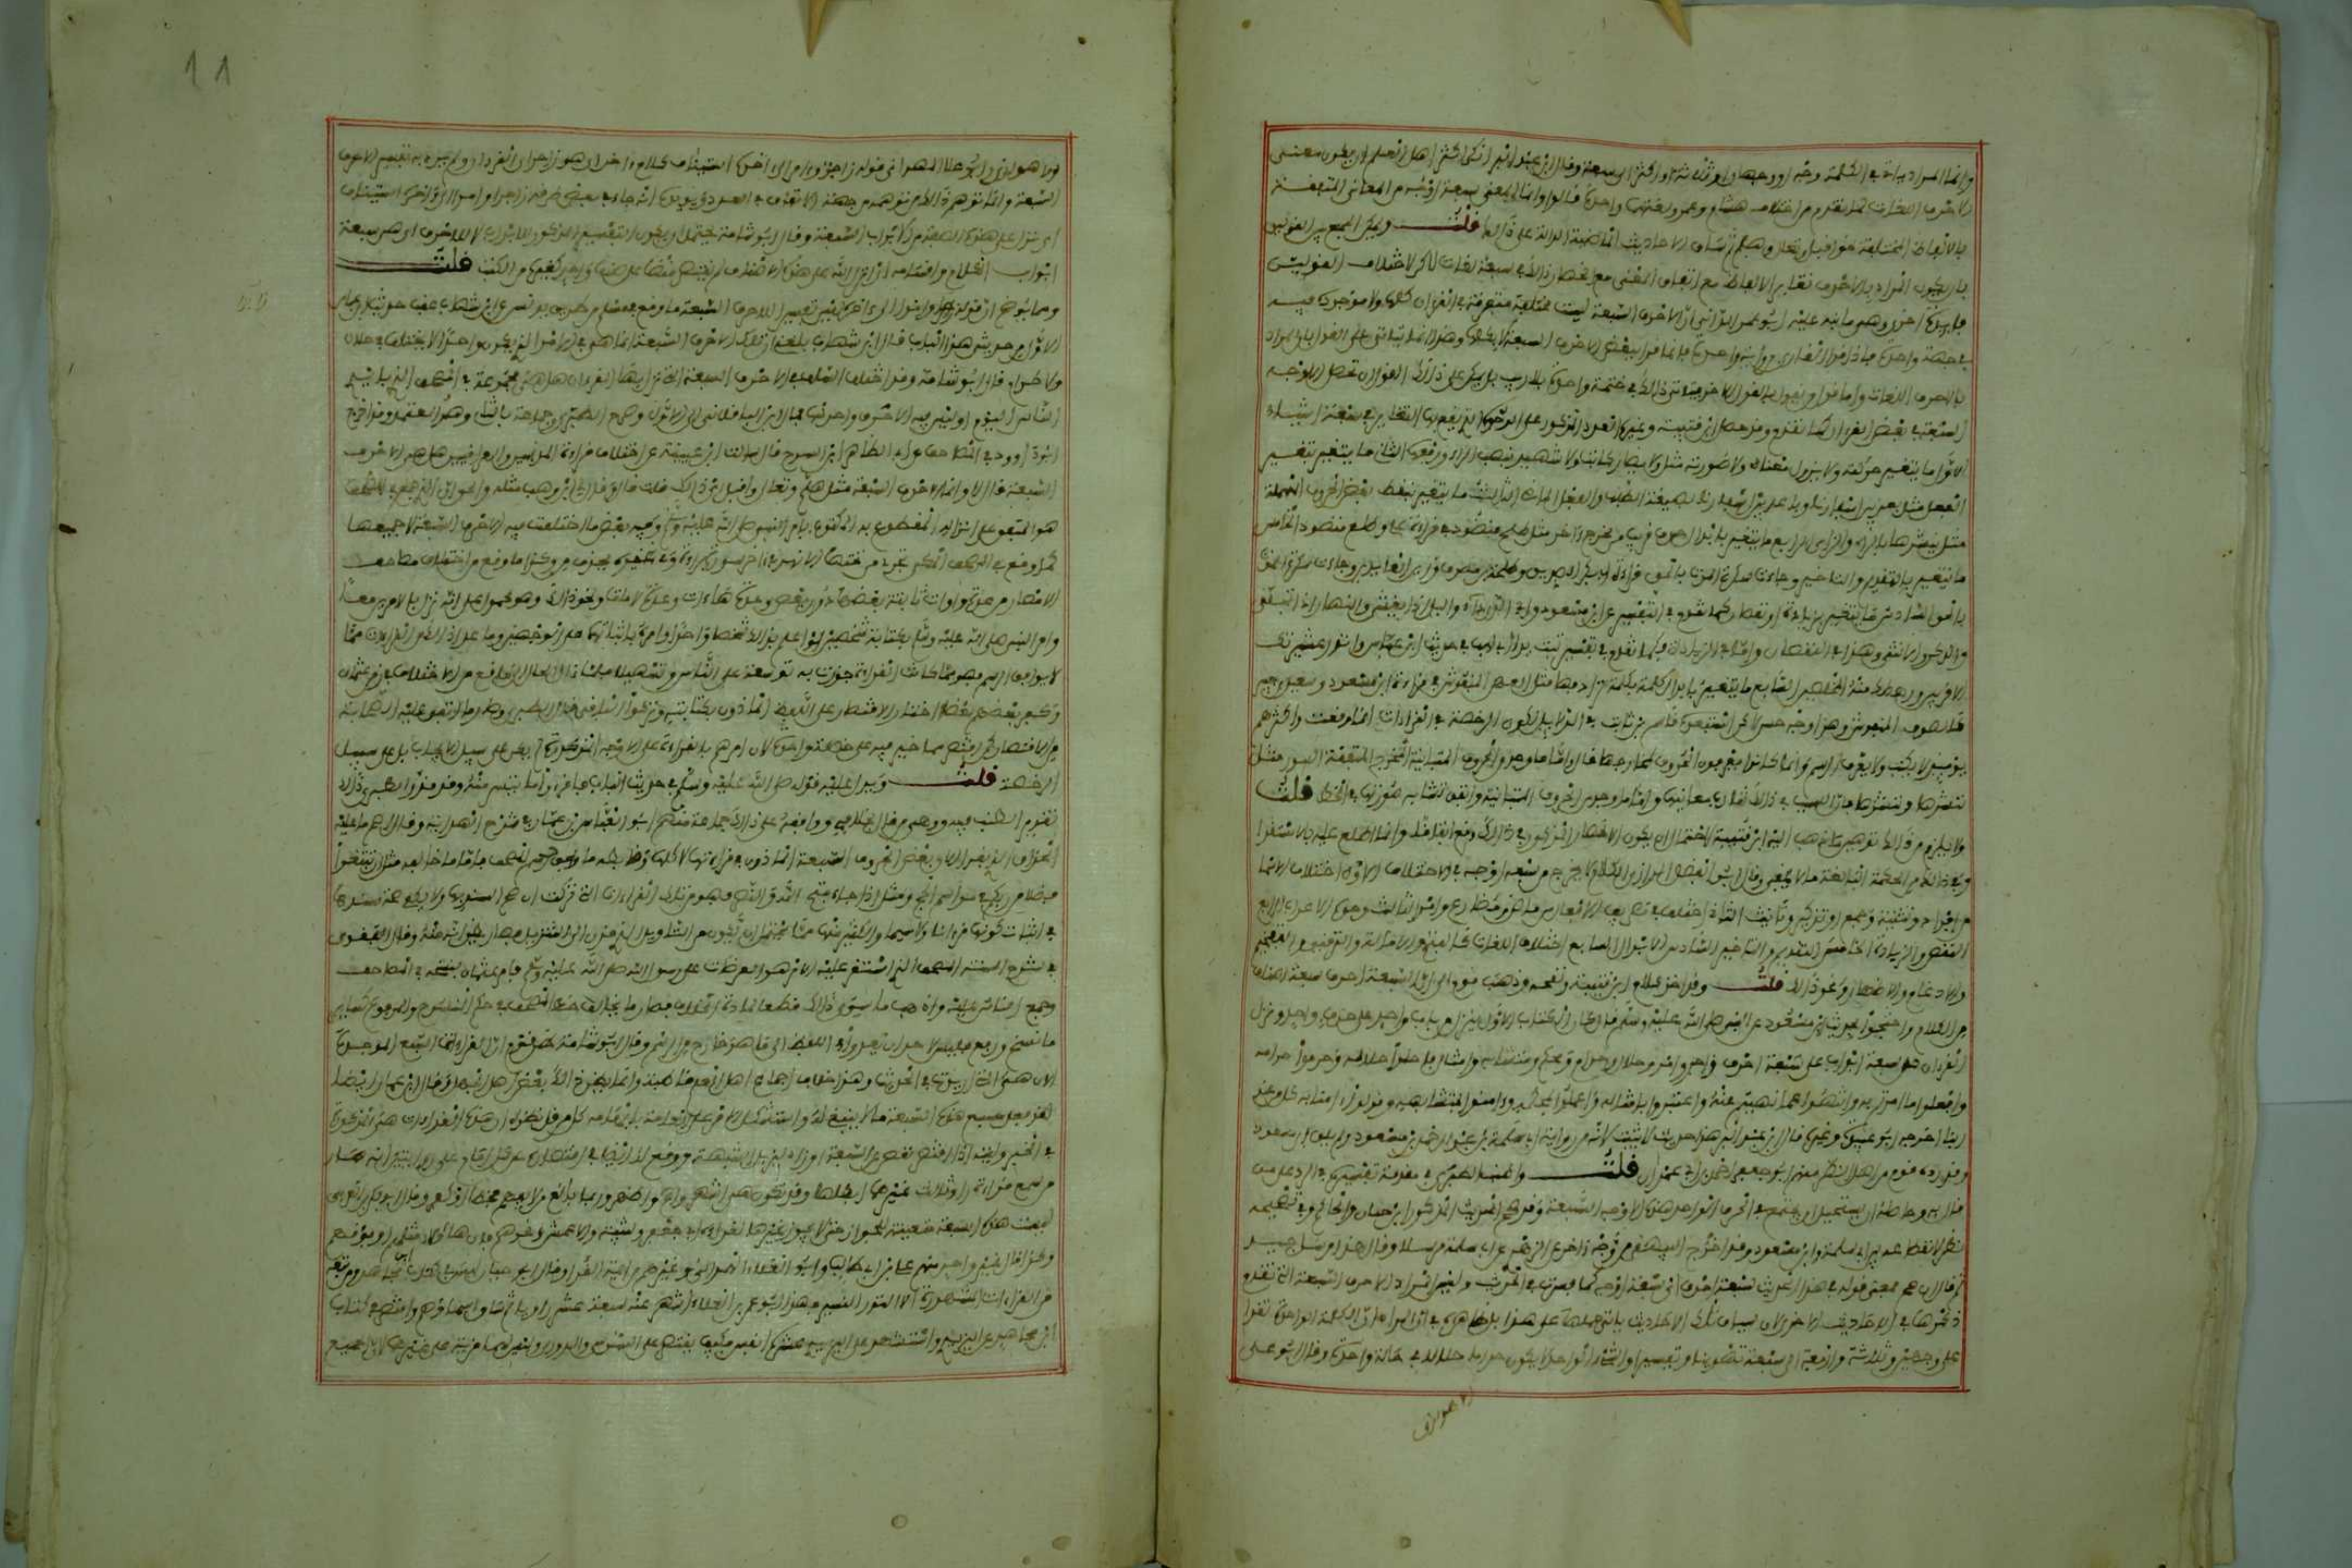 وانما المراد يأتي في الكلمة وجه او وجهان او ثلاثة او اكثر الى سبعة وقال ابن عبد البر انكر اكثر اهل العلم ان يكون معنى
الاحرف اللغات لما تقدم من اختلاف هشام وعمر ولغتهما واحدة قالوا وانما المعنى سبعة اوجه من المعاني المتفقة
بالالفاظ المختلفة نحو اقبل وتعال وهلم ثم ساق الاحاديث الماضية الدالة على ذلك قلت ويمكن الجمع بين القولين
بان يكون المراد بالاحرف تغاير الالفاظ مع اتفاق المعنى مع انحصار ذلك في سبع لغات لكن لاختلاف القولين
فايدة اخرى وهي ما نبه عليه ابو عمرو الداني ان الاحرف السبعة ليست متفرقة في القران كلها ولا موجودة فيه
في ختمة واحدة فاذا قرا القاري برواية واحدة فانما قرا ببعض الاحرف السبعة لا بكلها وهذا انما يتاتى على القول بان المراد
بالاحرف اللغات واما قول من يقول بالقول الاخر فيتاتى ذلك في ختمة واحدة بلا ريب بل يمكن على ذلك القول ان تحصل الاوجه
السبعة في بعض القران كما تقدم وقد حمل ابن قتيبة وغيره العدد المذكور على الوجوه التي يقع بها التغاير في سبعة اشياء
الاول ما يتغير حركته ولا يزول معناه ولا صورته مثل ولا يضار كاتب ولا شهيد بنصب الراء ورفعها الثاني ما يتغير بتغير
الفعل مثل بعد بين اسفارنا وباعد بين اسفارنا بصيغة الطلب والفعل الماضي الثالث ما يتغير بنقط بعض الحروف المهملة
مثل ننشرها بالراء والزاي الرابع ما يتغير بابدال حرف قريب من مخرج الاخر مثل طلح منضود في قراءة علي وطلع منضود الخامس
ما يتغير بالتقديم والتاخير وجاءت سكرة الموت بالحق في قراءة ابي بكر الصديق وطلحة بن مصرف وزين العابدين وجاءت سكرة الحق
بالموت السادس ما يتغير بزيادة او نقصان كما تقدم في التفسير عن ابن مسعود وابي الدرداء والليل اذا يغشى والنهار اذا تجلى
والذكر والانثى هذا في النقصان واما في الزيادة فكما تقدم في تفسير تبت يدا ابي لهب في حديث ابن عباس وانذر عشيرتك
الاقربين ورهطك منهم المخلصين السابع ما يتغير بابدال كلمة بكلمة ترادفها مثل العهن المنفوش في قراءة ابن مسعود وسعيد بن جبير
كالصوف المنفوش وهذا وجه حسن لكن استبعده قاسم بن ثابت في الدلايل لكون الرخصة في القراءات انما وقعت واكثرهم
يومئذ لا يكتب ولا يعرف الرسم وانما كانوا يعرفون الحروف بمخارجها قال واما ما وجد من الحروف المتباينة المخرج المتفقة الصورة مثل
ننشرها وننشزها فان السبب في ذلك تقارب معانيها واتفق تشابه صورتها في الخط قلت
ولا يلزم من ذلك توهين ما ذهب اليه ابن قتيبة لاحتمال ان يكون الانحصار المذكور في ذلك وقع اتفاقا وانما اطلع عليه بالاستقراء
وفي ذلك من الحكمة البالغة ما لا يخفى وقال ابو الفضل الرازي الكلام لا يخرج عن سبعة اوجه في الاختلاف الاول اختلاف الاسماء
من افراد وتثنية وجمع او تذكير وتانيث الثاني اختلاف تصريف الافعال من ماض ومضارع وامر الثالث وجوه الاعراب الرابع
النقص والزيادة الخامس التقديم والتاخير السادس الابدال السابع اختلاف اللغات كالفتح والامالة والترقيق والتفخيم
والادغام والاظهار ونحو ذلك قلت وقد اخذ كلام ابن قتيبة ونقحه وذهب قوم الى ان السبعة احرف سبعة اصناف
من الكلام واحتجوا بحديث ابن مسعود عن النبي صلى الله عليه وسلم قال كان الكتاب الاول ينزل من باب واحد على حرف واحد ونزل
القران من سبعة ابواب على سبعة احرف زاجر وامر وحلال وحرام ومحكم ومتشابه وامثال فاحلوا حلاله وحرموا حرامه
وافعلوا ما امرتم به وانتهوا عما نهيتم عنه واعتبروا بامثاله واعملوا بمحكمه وامنوا بمتشابهه وقولوا امنا به كل من عند
ربنا اخرجه ابو عبيد وغيره قال ابن عبد البر هذا حديث لا يثبت لانه من رواية ابي سلمة بن عبد الرحمن عن ابن مسعود ولم يلق ابن مسعود
وقد رده قوم من اهل النظر منهم ابو جعفر احمد بن ابي عمران قلت واطنب الطبري في مقدمة تفسيره في الرد على من
قال به وحاصله ان يستحيل ان يجتمع في الحرف الواحد هذه الاوجه السبعة وقد صحح الحديث المذكور ابن حبان والحاكم وفي تصحيحه
نظر لانقطاعه بين ابي سلمة وابن مسعود وقد اخرجه البيهقي من وجه اخر عن الزهري عن ابي سلمة مرسلا وقال هذا مرسل جيد
ثم قال ان صح فمعنى قوله في هذا الحديث سبعة احرف اي سبعة اوجه كما فسرت في الحديث وليس المراد الاحرف السبعة التي تقدم
ذكرها في الاحاديث الاخرى لان سياق تلك الاحاديث يابى حملها على هذا بل ظاهرة في ان المراد ان الكلمة الواحدة تقرا
على وجهين وثلاثة واربعة الى سبعة تهوينا وتيسيرا والشيء الواحد لا يكون حراما حلالا في حالة واحدة وقال ابو علي
الاهوازي
11
الاهوازي وابو العلا الهمداني قوله زاجر وامر الى اخره استيناف كلام اخر اي هو زاجر اي القران ولم يرد به تفسير الاحرف
السبعة وانما توهم ذلك من توهمه من جهة الاتفاق في العدد ويؤيده انه جاء في بعض طرقه زاجرا وامرا الى اخره بالنصب
اي نزل على هذه الصفة من الابواب السبعة وقال ابو شامة يحتمل ان يكون التفسير المذكور للابواب لا للاحرف اي هي سبعة
ابواب الكلام واقسامه انزله الله على هذه الاصناف لم يقتصر منها على صنف واحد كغيره من الكتب قلت
ومما يوضح ان قوله زاجر وامر الى اخره ليس تفسير الاحرف السبعة ما وقع في مسلم من طريق يونس عن ابن شهاب عقب حديث ابن عباس
الاول من حديثي هذا الباب قال ابن شهاب بلغني ان تلك الاحرف السبعة انما هي في الامر الذي يكون واحدا لا يختلف في حلال
ولا حرام قال ابو شامة وقد اختلف السلف في الاحرف السبعة التي نزل بها القران هل هي مجموعة في المصحف الذي بايدي
الناس اليوم او ليس فيه الا حرف واحد منها مال ابن الباقلاني الى الاول وصرح الطبري وجماعة بالثاني وهو المعتمد وقد اخرج
ابن ابي داوود في المصاحف عن ابي الطاهر ابن السرح قال سالت ابن عيينة عن اختلاف قراءة المدنيين والعراقيين هل هي الاحرف
السبعة قال لا وانما الاحرف السبعة مثل هلم وتعال واقبل اي ذلك قلت اجزاك قال وقال لي ابن وهب مثله والحق ان الذي جمع في المصحف
هو المتفق على انزاله المقطوع به المكتوب بامر النبي صلى الله عليه وسلم وفيه بعض ما اختلفت فيه الاحرف السبعة لا جميعها
كما وقع في المصحف المكي تجري من تحتها الانهار في اخر سورة براءة وفي غيره بحذف من وكذا ما وقع من اختلاف مصاحف
الامصار من عدة واوات ثابتة بعضها دون بعض وعدة هاءات وعدة لامات ونحو ذلك وهو محمول على انه نزل بالامرين معا
وامر النبي صلى الله عليه وسلم بكتابته لشخصين او اعلم بذلك شخصا واحدا وامره باثباتهما على الوجهين وما عدا ذلك من القراءات مما
لا يوافق الرسم فهو مما كانت القراءة جوزت به توسعة على الناس وتسهيلا فلما ال الحال الى ما وقع من الاختلاف في زمن عثمان
وكفر بعضهم بعضا اختار الاقتصار على اللفظ الماذون بكتابته وتركوا الباقي قال الطبري وصار ما اتفق عليه الصحابة
من الاقتصار كمن اقتصر مما خير فيه على خصلة واحدة لان امرهم بالقراءة على الاوجه المذكورة لم يكن على سبيل الايجاب بل على سبيل
الرخصة قلت ويدل عليه قوله صلى الله عليه وسلم في حديث الباب فاقرؤا ما تيسر منه وقد قرر الطبري ذلك
تقريرا اطنب فيه ووهى من قال بخلافه ووافقه على ذلك جماعة منهم ابو العباس بن عمار في شرح الهداية وقال اصح ما عليه
الحذاق ان الذي يقرا الان بعض الحروف السبعة الماذون في قراءتها لا كلها وضابطه ما وافق رسم المصحف فاما ما خالفه مثل ان تبتغوا
فضلا من ربكم في مواسم الحج ومثل اذا جاء فتح الله والنصر فهو من تلك القراءات التي تركت ان صح السند بها ولا يكفي صحة سندها
في اثبات كونها قرانا ولا سيما والكثير منها مما يحتمل ان يكون من التاويل الذي قرن الى التنزيل فصار يظن انه منه وقال البغوي
في شرح السنة المصحف الذي استقر عليه الامر هو اخر العرضات على رسول الله صلى الله عليه وسلم فامر عثمان بنسخه في المصاحف
وجمع الناس عليه واذهب ما سوى ذلك قطعا لمادة الخلاف فصار ما يخالف خط المصحف في حكم المنسوخ والمرفوع كسائر
ما نسخ ورفع فليس لاحد ان يعدو في اللفظ الى ما هو خارج عن الرسم وقال ابو شامة ظن قوم ان القراءات السبع الموجودة
الان هي التي اريدت في الحديث وهو خلاف اجماع اهل العلم قاطبة وانما يظن ذلك بعض اهل الجهل وقال ابن عمار ايضا
لقد فعل مسبع هذه السبعة ما لا ينبغي له واشكل الامر على العامة بايهامه كل من قل نظره ان هذه القراءات هي المذكورة
في الخبر وليته اذا اقتصر نقص عن السبعة او زاد ليزيل الشبهة ووقع له ايضا في اقتصاره عن كل امام على راويين انه صار
من سمع قراءة راو ثالث غيرهما ابطلها وقد تكون هي اشهر واصح واظهر وربما بالغ من لا يفهم فخطا او كفر وقال ابو بكر بن العربي
ليست هذه السبعة متعينة للجواز حتى لا يجوز غيرها كقراءة ابي جعفر وشيبة والاعمش ونحوهم فان هؤلاء مثلهم او فوقهم
وكذا قال غير واحد منهم مكي بن ابي طالب وابو العلاء الهمداني وغيرهم من ايمة القراء وقال ابو حيان ليس في كتاب ابن مجاهد ومن تبعه
من القراءات المشهورة الا النزر اليسير فهذا ابو عمرو بن العلاء اشتهر عنه سبعة عشر راويا ثم ساق اسماءهم واقتصر في كتاب
ابن مجاهد على اليزيدي واشتهر عن اليزيدي عشرة انفس فكيف يقتصر على السوسي والدوري وليس لهما مزية على غيرهما لان الجميع